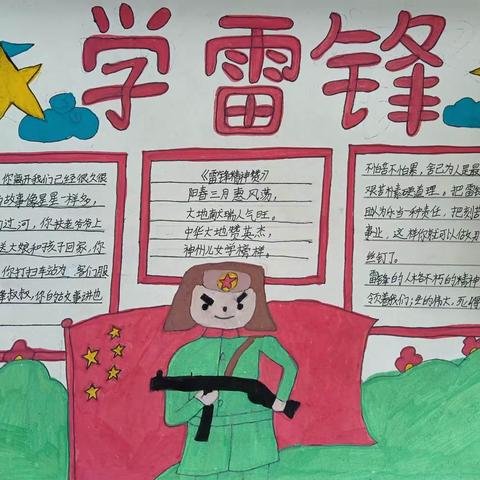 学雷锋
你离开我们已经很久很
故事像星星一样多,
过河,你扶老爷爷上
送大娘和孩子回家,你
你打扫车站为客们服
锋叔叔,你的故事讲也
《雷锋精神赞》
阳春三月惠风荡,
大地献瑞人气旺。
中华大地赞英杰,
神州儿女学榜样。
不怕苦不怕累,舍己为人是最
艰苦朴素是真理。把雷锋
助人为乐当一种责任,把刻苦
事业,这样你就可以做
丝钉。
雷锋的人格不朽的精神
领着我们;生的伟大,死得